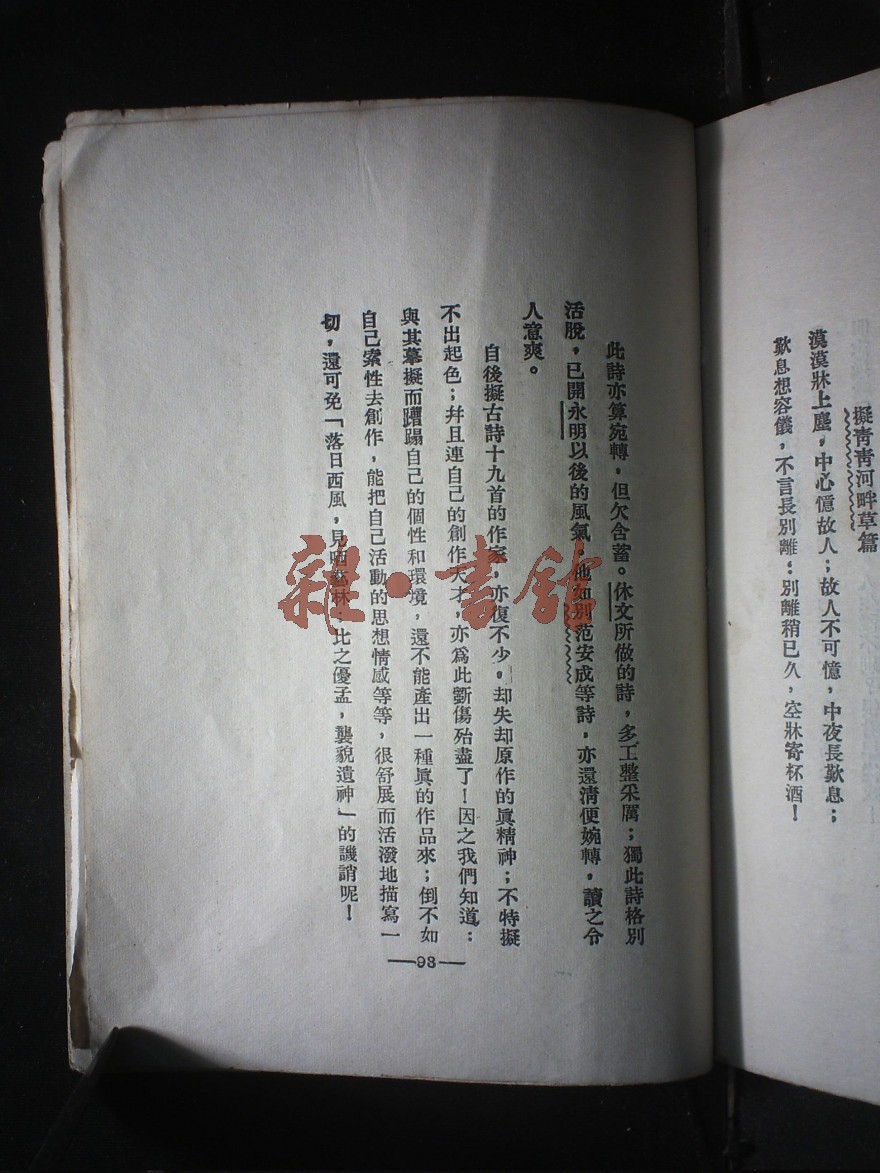 擬靑靑河畔草篇
漠漠牀上塵，中心憶故人；故人不可憶，中夜長歎息；
歎息想容儀，不言長別離：別離稍已久，空牀寄杯酒！
此詩亦算宛轉，但欠含蓄。休文所做的詩，多工整采厲；獨此詩格別
活脫，已開永明以後的風氣，他如別范安成等詩，亦還清便婉轉，讀之令
人意爽。
自後擬古詩十九首的作家，亦復不少。却失却原作的眞精神；不特擬
不出起色；幷且連自己的創作天才，亦爲此斵傷殆盡了！因之我們知道：
與其摹擬而蹧蹋自己的個性和環境，還不能產出一種眞的作品來；倒不如
自己索性去創作，能把自己活動的思想情感等等，很舒展而活潑地描寫一
切，還可免「落日西風，見哂藝林；比之優孟，襲貌遺神」的譏誚呢！
—93—
雜·書館